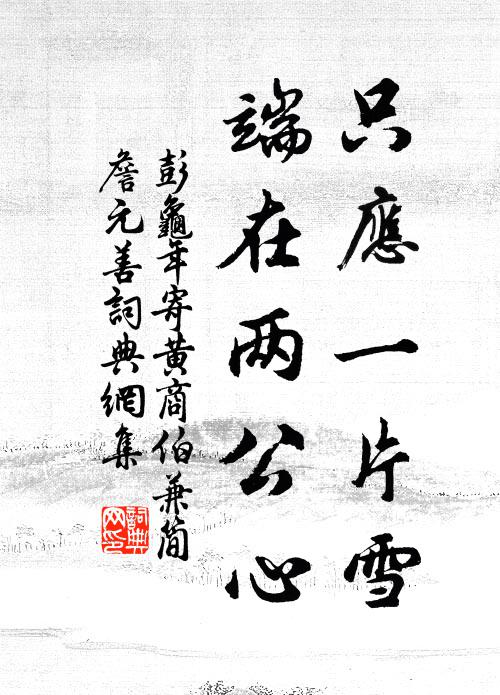 只應一片雪
端在两公心
彭龜年寄黃商伯兼簡
詹元善詞典網集
詞典网印